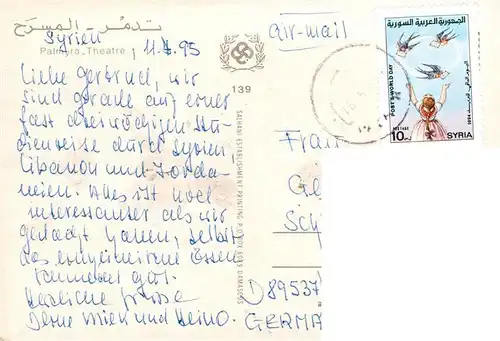 تدمر - المسرح
Palmyra - Theatre
Syrien, 11.4.95
Liebe Gertrud, wir
sind gerade auf einer
fast dreiwöchigen Stu-
dienreise durch Syrien,
Libanon und Jorda-
nien. Alles ist noch
interessanter als wir
gedacht haben, selbst
das einheimische Essen
gut.
Herzliche Grüsse
Deine und Heino.
139
SALHANI ESTABLISHMENT PRINTING P.O. BOX DAMASCUS
air-mail
الجمهورية العربية السورية
POST'S WORLD DAY
POSTAGE
10
SYRIA
Frau
Ge
Sch
D 89537
GERMA